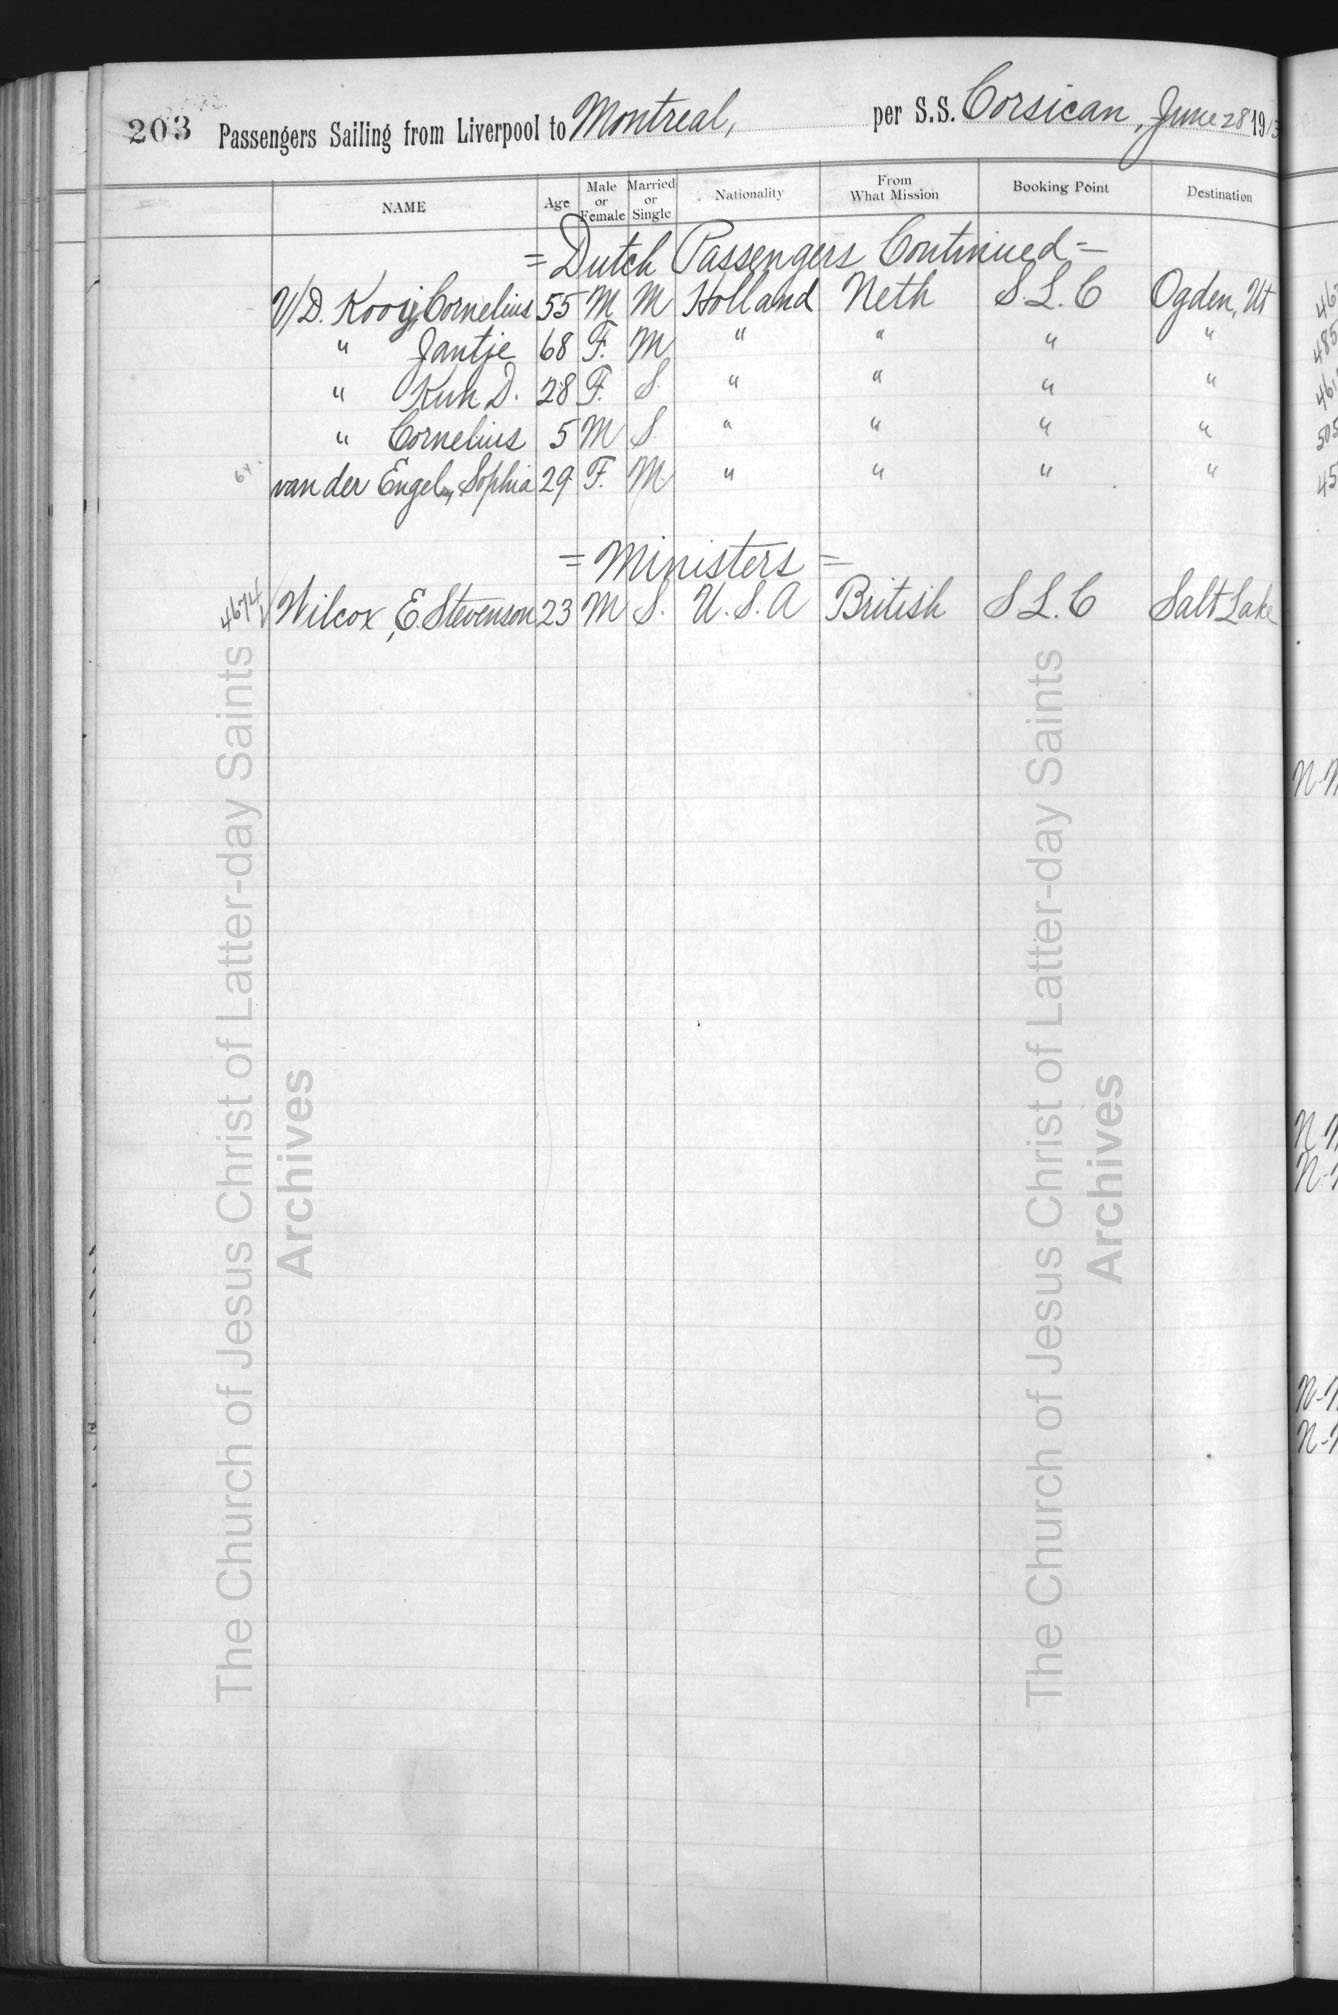 203 Passengers Sailing from Liverpool to Montreal, per S.S. Corsican, June 28 1913
NAME Age Male or Female Married or Single Nationality From What Mission Booking Point Destination
= Dutch Passengers Continued =
V/D. Kooij, Cornelius 55 M M Holland Neth S L. C Ogden, Ut
" Jantje 68 F. M " " " "
" D. 28 F. S. " " " "
" Cornelius 5 M S. " " " "
van der Engel, Sophia 29 F. M. " " " "
= Ministers =
4674 Wilcox, E. Stevenson 23 M S. U. S. A British S L. C Salt Lake
The Church of Jesus Christ of Latter-day Saints
Archives
The Church of Jesus Christ of Latter-day Saints
Archives